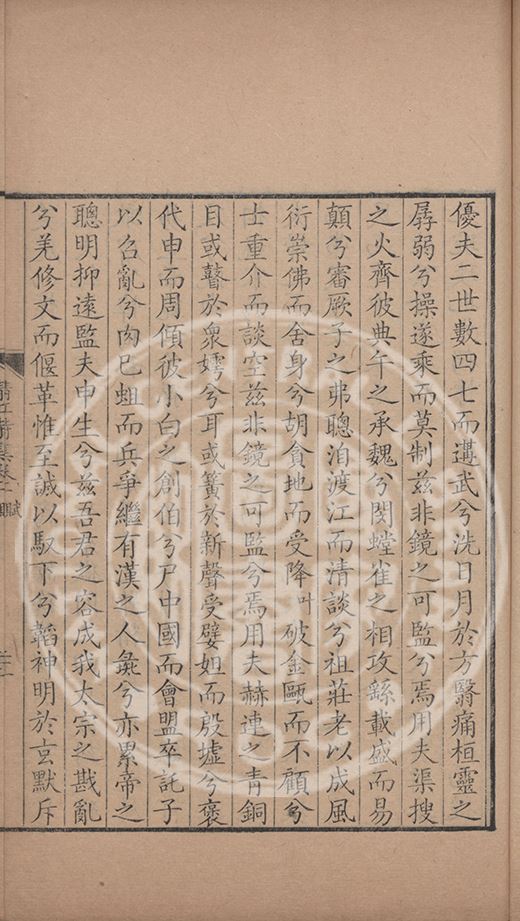 優夫二世數四七而遘武兮洗日月於方翳痛桓靈之
孱弱兮操遂乘而莫制茲非鏡之可監兮焉用夫渠搜
之火齊彼典午之承魏兮閔螳雀之相攻繇載盛而易
顛兮審厥子之弗聰洎渡江而清談兮祖莊老以成風
衍崇佛而舍身兮胡貪地而受降叶破金甌而不顧兮
士重介而談空茲非鏡之可監兮焉用夫赫連之青銅
目或瞽於衆嫮兮耳或簧於新聲受嬖妲而殷墟兮褒
代申而周傾彼小白之創伯兮尸中國而會盟卒託子
以召亂兮肉已蛆而兵爭繼有漢之人彘兮亦累帝之
聰明抑遠監夫申生兮茲吾君之容成我太宗之戡亂
兮羌修文而偃革惟至誠以馭下兮韜神明於玄默斥
清江詩集卷一 賦